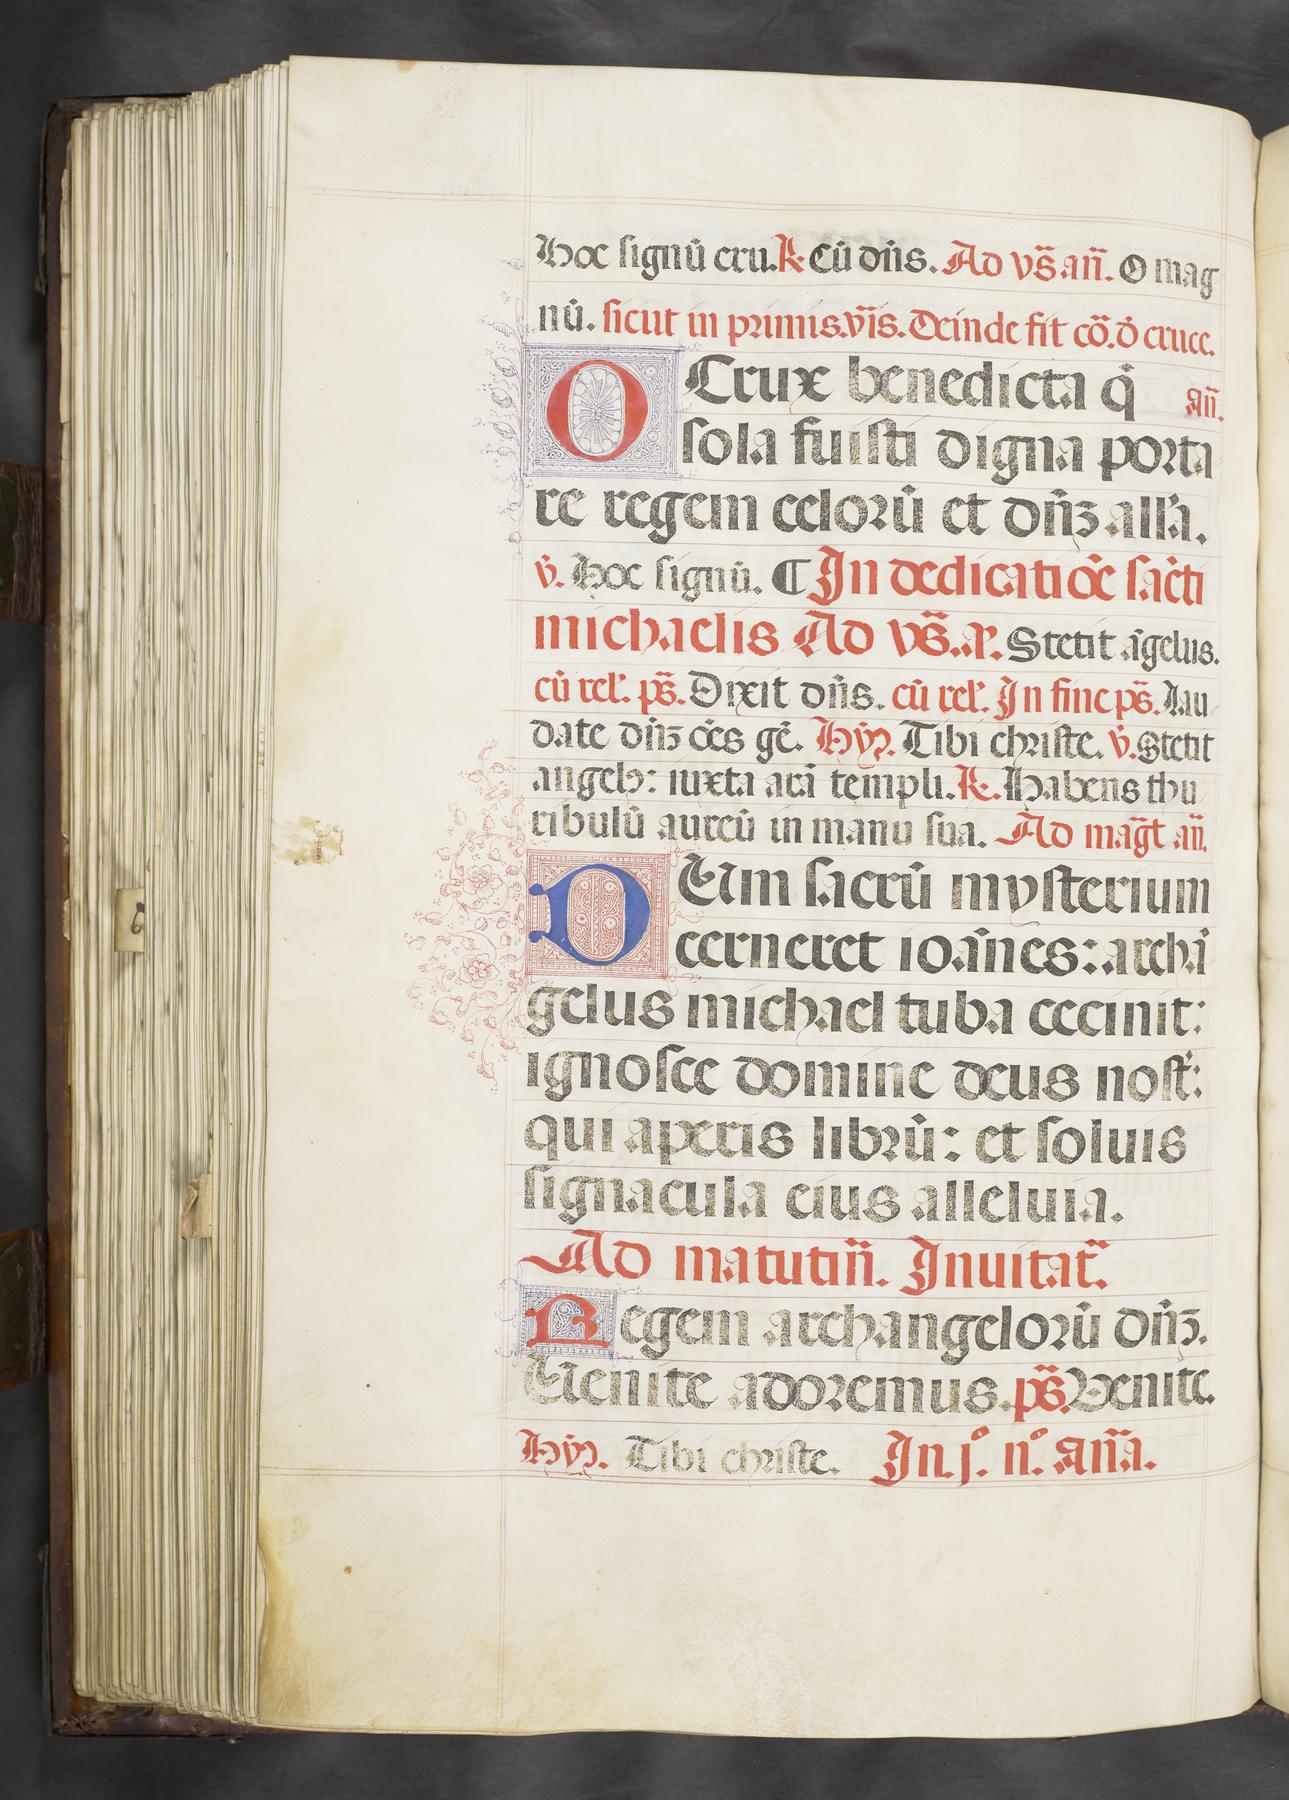 Hoc signū cru. R. Cū dn̄s. Ad vs̄ an̄. O mag
nū. sicut in primis vīs. Deinde fit cō. d̄ cruce.
O Crux benedicta q̄ an̄.
sola fuisti digna porta
re regem celorū et dn̄ꝫ all'a.
v̄. Hoc signū. ¶ In dedicatiōe sācti
michaelis Ad vs̄. a'. Stetit āgelus.
cū rel'. ps̄. Dixit dn̄s. cū rel'. In fine ps̄. Lau
date dn̄ꝫ oēs gē. Hȳn. Tibi christe. v̄. Stetit
angelꝰ: iuxta arā templi. R. Habens thu
ribulū aureū in manu sua. Ad maḡt an̄.
DUm sacrū mysterium
cerneret ioānes: archā
gelus michael tuba cecinit:
ignosce domine deus nost':
qui aperis librū: et soluis
signacula eius alleluia.
Ad matutin̄. Inuitat̄.
Regem archangelorū dn̄ꝫ.
Uenite adoremus. ps̄. Venite.
Hȳn. Tibi christe. In j.º n.º An̄a.
6